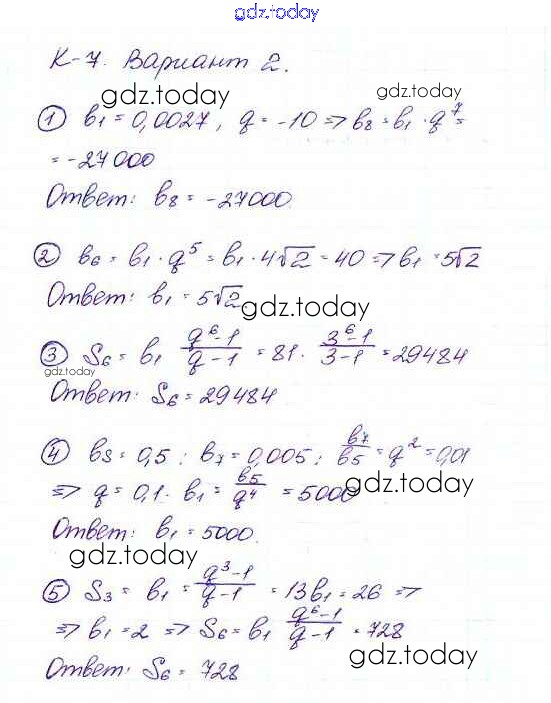 gdz.today
К-7. Вариант 2.
gdz.today gdz.today
① b₁ = 0,0027, q = -10 => b₈ = b₁ · q⁷ =
= -27000
Ответ: b₈ = -27000.
② b₆ = b₁ · q⁵ = b₁ · 4√2 = 40 => b₁ = 5√2
Ответ: b₁ = 5√2.
gdz.today
③ S₆ = b₁ (q⁶-1)/(q-1) = 81 · (3⁶-1)/(3-1) = 29484
gdz.today
Ответ: S₆ = 29484
④ b5 = 0,5 ; b₇ = 0,005 ; b₇/b₅ = q² = 0,01
=> q = 0,1. b₁ = b₅/q⁴ = 5000
gdz.today
Ответ: b₁ = 5000.
gdz.today
⑤ S₃ = b₁ = (q³-1)/(q-1) = 13b₁ = 26 =>
=> b₁ = 2 => S₆ = b₁ (q⁶-1)/(q-1) = 728
gdz.today
Ответ: S₆ = 728